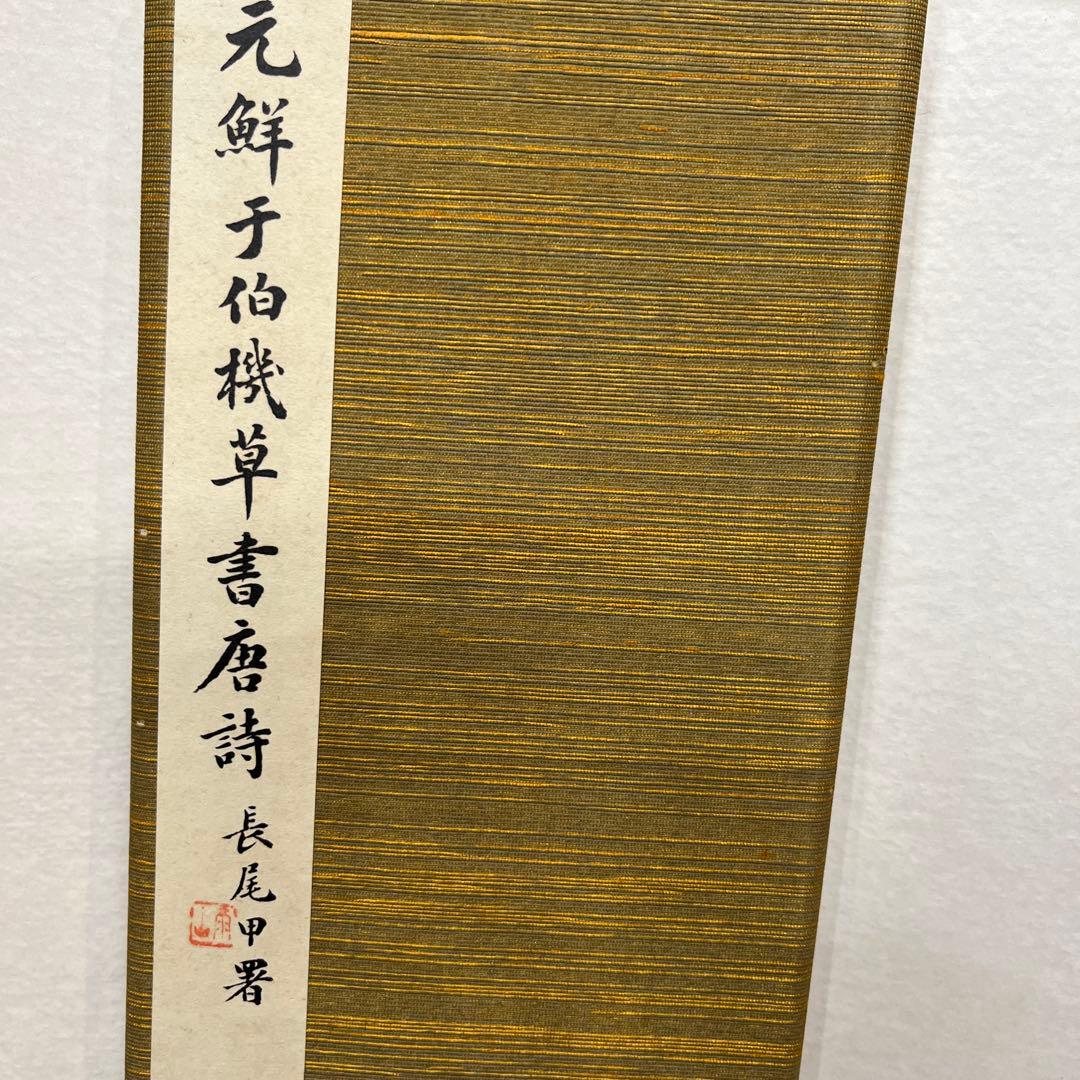 元鮮于伯機草書唐詩
長尾甲署
雨山